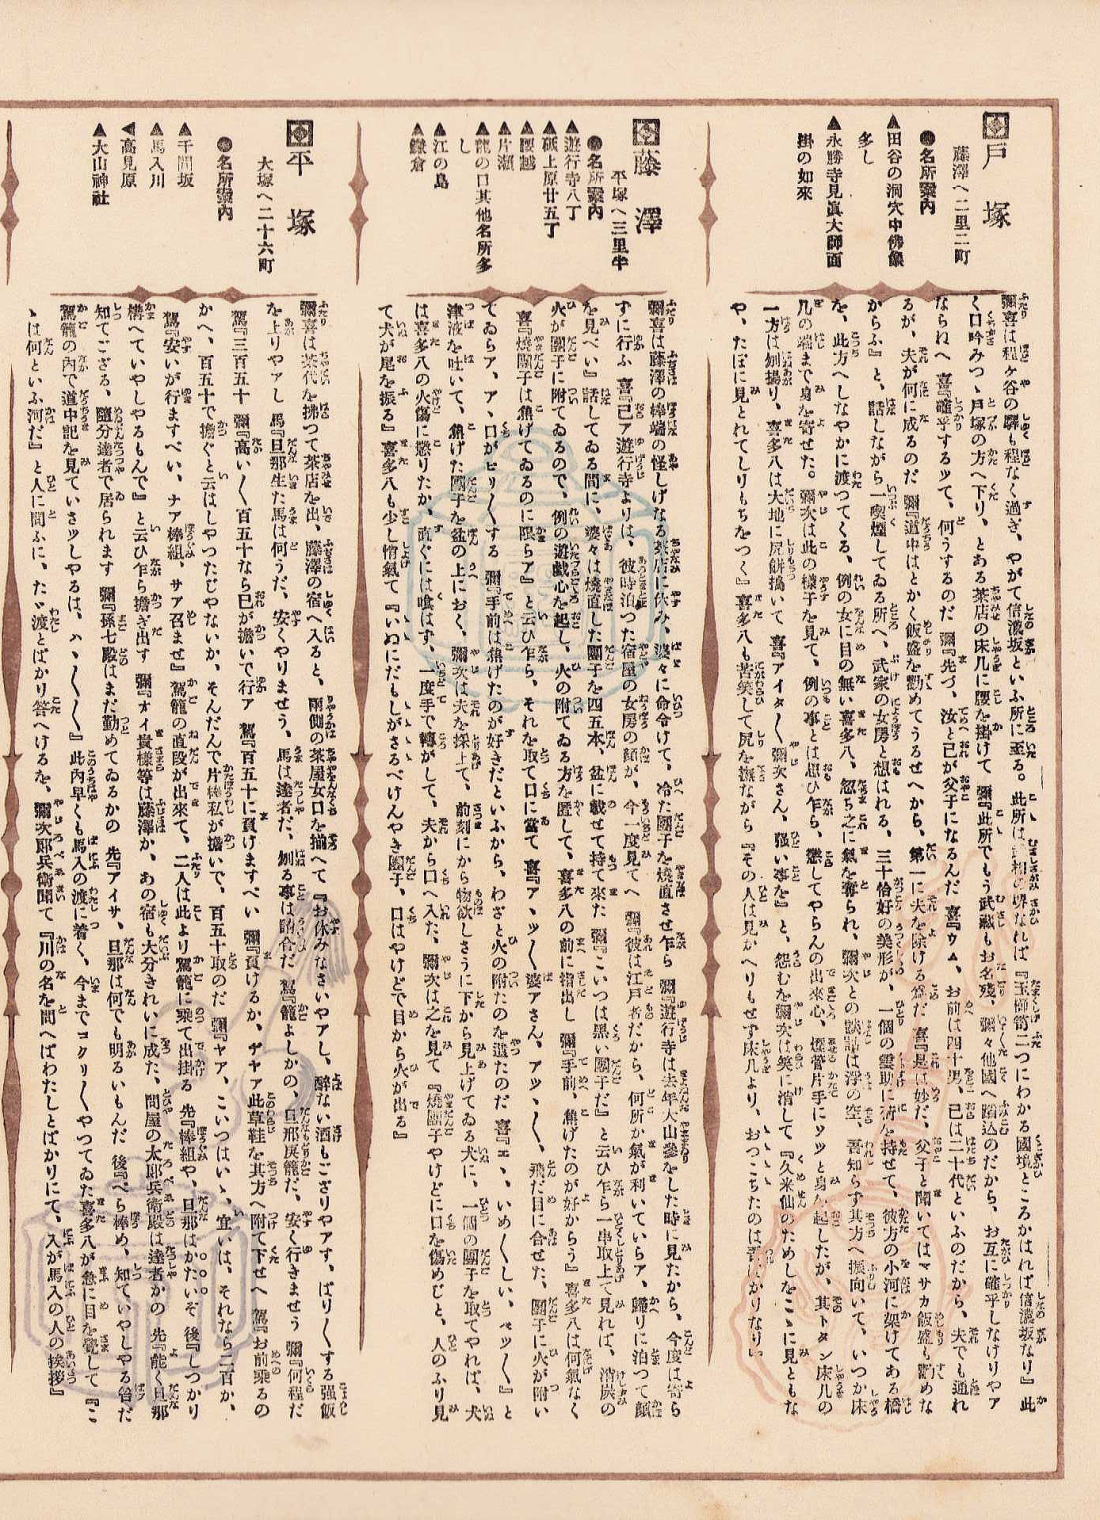 戸塚
藤澤へ二里二町
●名所案内
▲田谷の洞穴中佛像
多し
▲永勝寺見眞大師面
掛の如來
彌喜は程ヶ谷の驛も程なく過ぎ、やがて信濃坂といふ所に至る。此所は武相の堺なれば『玉櫛笥二つにわかる國境ところかはれば信濃坂なり』此
く口吟みつゝ戸塚の方へ下り、とある茶店の床几に腰を掛けて 彌『此所でもう武藏もお名殘、彌々他國へ踏込のだから、お互に確乎しなけりやア
ならねへ 喜『確乎するッて、何うするのだ 彌『先づ、汝と己が父子になるんだ 喜『ウム、お前は四十男、己は二十代といふのだから、夫でも通れ
るが、夫が何に成るのだ 彌『道中はとかく飯盛を勸めてうるせへから、第一に夫を除ける爲だ 喜『是は妙だ、父子と聞いてはマサカ飯盛も勸めな
からふ』と、話しながら一喫煙してゐる所へ、武家の女房と想はれる、三十恰好の美形が、一個の雲助に荷を持せて、彼方の小河に架けてある橋
を、此方へしなやかに渡つてくる、例の女に目の無い喜多八、忽ち之に氣を奪られ、彌次との談話は浮の空、吾知らず其方へ振向いて、いつか床
几の端まで身を寄せた。彌次は此の樣子を見て、例の事とは思ひ乍ら、懲してやらんの出來心、煙管片手にツッと身を起したが、其トタン床几の
一方は刎揚り、喜多八は大地に尻餅搗いて、喜『アイタ〱彌次さん、强い事を』と、怨むを彌次は笑に消して『久米仙のためしをこゝに見ともな
や、たぼに見とれてしりもちをつく』喜多八も苦笑して尻を撫ながら『その人は見かへりもせず床几より、おつこちたのは吾ばかりなり』
藤澤
平塚へ三里半
●名所案内
▲遊行寺八丁
▲砥上原廿五丁
▲腰越
▲片瀬
▲龍の口其他名所多
し
▲江の島
▲鎌倉
彌喜は藤澤の棒端の怪しげなる茶店に休み、婆々に命令けて、冷た團子を燒直させ乍ら 彌『遊行寺は去年大山參をした時に見たから、今度は寄ら
ずに行ふ 喜『己ア遊行寺よりは、彼時泊つた宿屋の女房の顏が、今一度見てへ 彌『彼は江戸者だから、何所か氣が利いていらア、歸りに泊つて顏
を見べい』話してゐる間に、婆々は燒直した團子を四五本、盆に載せて持て來た 彌『こいつは黑い團子だ』と云ひ乍ら一串取上て見れば、消炭の
火が團子に附てゐるので、例の遊戯心を起し、火の附てゐる方を匿して、喜多八の前に指出し 彌『手前、焦げたのが好からう』喜多八は何氣なく
喜『燒團子は焦げてゐるのに限らア』と云ひ乍ら、それを取て口に當て 喜『アヽツ〱婆アさん、アツ〱〱、飛だ目に合せた、團子に火が附い
てゐらア、アヽ口がピリ〱する 彌『手前は焦げたのが好きだといふから、わざと火の附たのを遣たのだ 喜『エヽ、いめ〱しい、ペッ〱』と
津液を吐いて、焦げた團子を盆の上におく、彌次は夫を採上て、前刻にから物欲しさうに下から見上げてゐる犬に、一個の團子を取てやれば、犬
は喜多八の火傷に懲りたか、直ぐには喰はず、一度手で轉がして、夫から口へ入た、彌次は之を見て『燒團子やけどに口を傷めじと、人のふり見
て犬が尾を振る』喜多八も少し悄氣て『いぬにだもしがさるべけんやき團子、口はやけどで目から火が出る』
平塚
大塚へ二十六町
●名所案内
▲千間坂
▲馬入川
▲高見原
▲大山神社
彌喜は茶代を拂つて茶店を出、藤澤の宿へ入ると、兩側の茶屋女口を揃へて『お休みなさいやアし、醉ない酒もござりやアす、ばり〱する强飯
を上りやアし 馬『旦那生た馬は何うだ、安くやりませう、馬は達者だ、刎る事は請合だ 駕『籠よしかの、旦那戻籠だ、安く行きませう 彌『何程だ
駕『三百五十 彌『高い〱百五十なら己が擔いで行ア 駕『百五十に負けますべい 彌『負けるか、ヤヤア此草鞋を其方へ附て下せへ 駕『お前乘るの
かへ、百五十で擔ぐと云はしやつたじやないか、そんだんで片棒私が擔いで、百五十取のだ 彌『ヤア、こいつはいゝ、宜いは、それなら二百か、
駕『安いが行ますべい、ナア棒組、サア召ませ』駕籠の直段が出來て、二人は此より駕籠に乘て出掛る 先『棒組や、旦那はかたいぞ 後『しつかり
構へていやしやるもんで』と云ひ乍ら擔ぎ出す 彌『オイ貴樣等は藤澤か、あの宿も大分きれいに成た、問屋の太郎兵衛殿は達者かの 先『能く旦那
知てござる、隨分達者で居られます 彌『孫七殿はまだ勤めてゐるかの 先『アイサ、旦那は何でも明るいもんだ 後『べら棒め、知ていやしやる筈だ
駕籠の内で道中記を見ていさッしやるは、ハヽ〱〱〱』此内早くも馬入の渡に着く、今までコクリ〱やつてゐた喜多八が急に目を覺して『こ
ゝは何といふ河だ』と人に問ふに、たゞ渡とばかり答へけるを、彌次郎兵衛聞て『川の名を問へばわたしとばかりにて、入が馬入の人の挨拶』